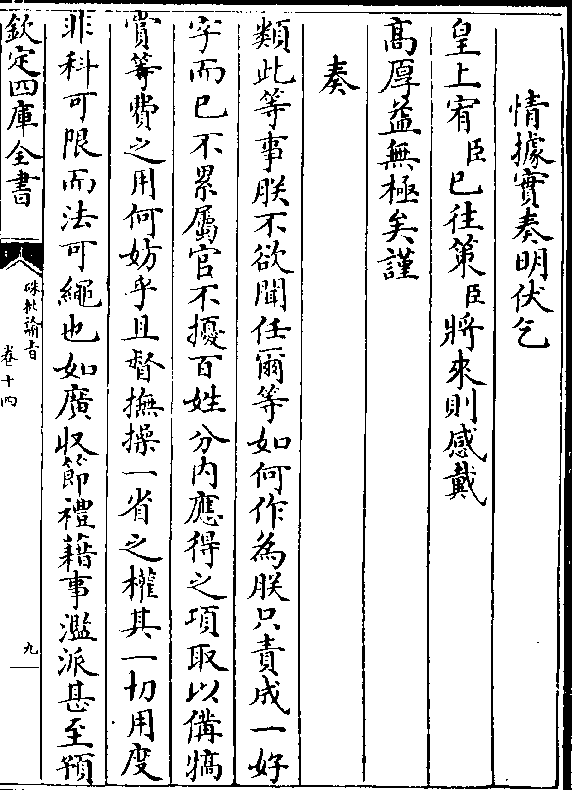 情據實奏明伏乞
皇上宥臣已往策臣將來則感戴
高厚益無極矣謹
奏
類此等事朕不欲聞任爾等如何作為朕只責成一好
字而已不累屬官不擾百姓分內應得之項取以備犒
賞等費之用何妨乎且督撫操一省之權其一切用度
非科可限而法可繩也如廣收節禮藉事濫派甚至預
欽定四庫全書
硃批諭旨
卷十四
九